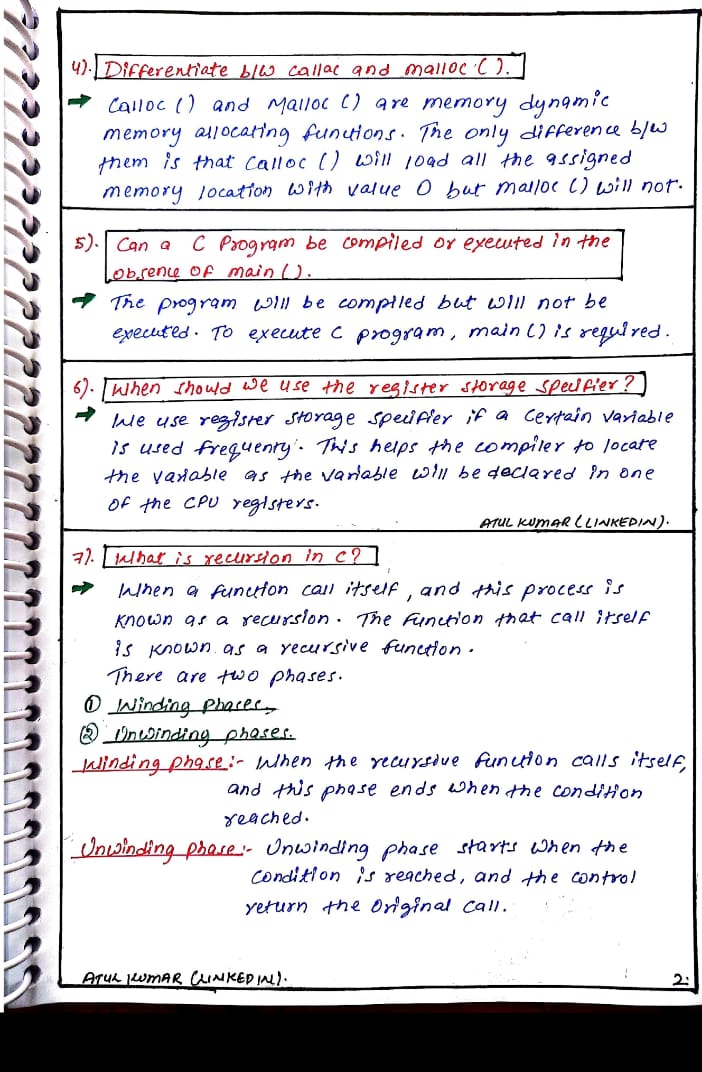 4). Differentiate b/w callac and malloc ().
Calloc () and Malloc () are memory dynamic
memory allocating functions. The only difference b/w
them is that Calloc () will load all the assigned
memory location with value 0 but malloc () will not.
5). Can a C Program be compiled or executed in the
obsence of main ().
The program will be compiled but will not be
executed. To execute C program, main () is required.
6). When should we use the register storage specifier?
We use register storage specifier if a certain variable
is used frequenty. This helps the compiler to locate
the variable as the variable will be declared in one
of the CPU registers.
ATUL KUMAR (LINKEDIN).
7). What is recursion in C?
When a function call itself, and this process is
known as a recursion. The function that call itself
is known as a recursive function.
There are two phases.
① Winding phases
② Unwinding phases.
Winding phase :- When the recursive function calls itself,
and this phase ends when the condition
reached.
Unwinding phase :- Unwinding phase starts when the
condition is reached, and the control
return the original call.
ATUL KUMAR (LINKEDIN).
2.